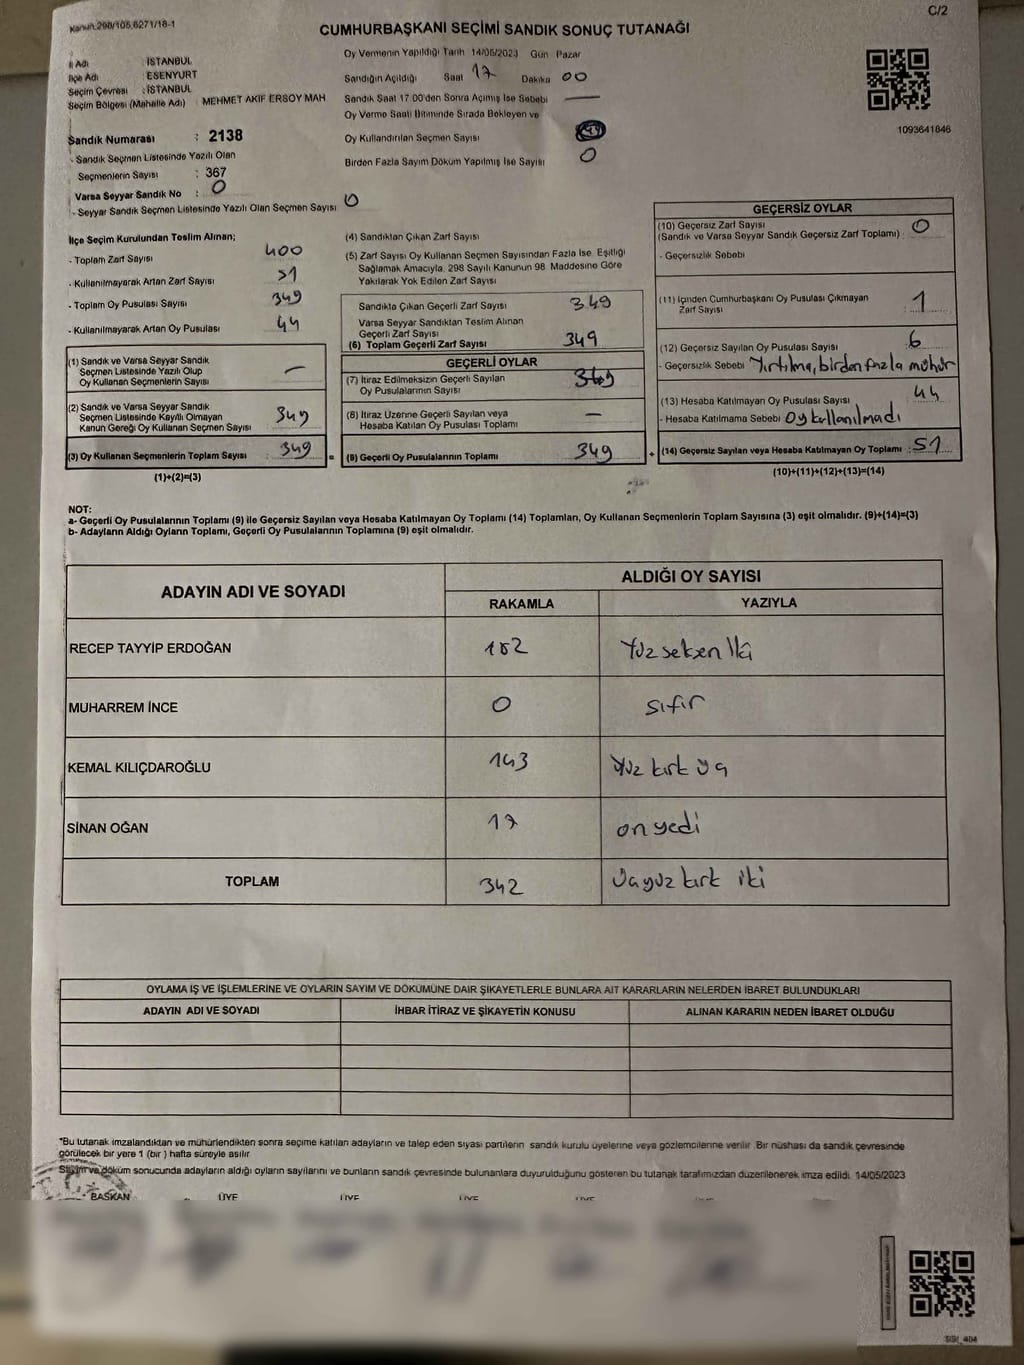 Kanun:298/105,6271/18-1
C/2
CUMHURBAŞKANI SEÇİMİ SANDIK SONUÇ TUTANAĞI
İl Adı : İSTANBUL
İlçe Adı : ESENYURT
Seçim Çevresi : İSTANBUL
Seçim Bölgesi (Mahalle Adı) : MEHMET AKİF ERSOY MAH
Sandık Numarası : 2138
- Sandık Seçmen Listesinde Yazılı Olan
Seçmenlerin Sayısı : 367
Varsa Seyyar Sandık No : 0
- Seyyar Sandık Seçmen Listesinde Yazılı Olan Seçmen Sayısı 0
Oy Vermenin Yapıldığı Tarih 14/05/2023 Gün Pazar
Sandığın Açıldığı Saat 17 Dakika 00
Sandık Saat 17 00'den Sonra Açımış İse Sebebi —
Oy Verme Saati Bitiminde Sırada Bekleyen ve
Oy Kullandırılan Seçmen Sayısı
Birden Fazla Sayım Döküm Yapılmış İse Sayısı 0
1093641846
İlçe Seçim Kurulundan Teslim Alınan;
- Toplam Zarf Sayısı 400
- Kullanılmayarak Artan Zarf Sayısı 51
- Toplam Oy Pusulası Sayısı 349
- Kullanılmayarak Artan Oy Pusulası 44
(1) Sandık ve Varsa Seyyar Sandık
Seçmen Listesinde Yazılı Olup
Oy Kullanan Seçmenlerin Sayısı —
(2) Sandık ve Varsa Seyyar Sandık
Seçmen Listesinde Kayıtlı Olmayan
Kanun Gereği Oy Kullanan Seçmen Sayısı 349
(3) Oy Kullanan Seçmenlerin Toplam Sayısı : 349
(1)+(2)=(3)
=
(4) Sandıktan Çıkan Zarf Sayısı
(5) Zarf Sayısı Oy Kullanan Seçmen Sayısından Fazla İse, Eşitliği
Sağlamak Amacıyla, 298 Sayılı Kanunun 98 Maddesine Göre
Yakılarak Yok Edilen Zarf Sayısı
Sandıkta Çıkan Geçerli Zarf Sayısı 349
Varsa Seyyar Sandıktan Teslim Alınan
Geçerli Zarf Sayısı
(6) Toplam Geçerli Zarf Sayısı 349
GEÇERLİ OYLAR
(7) İtiraz Edilmeksizin Geçerli Sayılan
Oy Pusulalarının Sayısı 349
(8) İtiraz Üzerine Geçerli Sayılan veya
Hesaba Katılan Oy Pusulası Toplamı —
(9) Geçerli Oy Pusulalarının Toplamı 349
+
GEÇERSİZ OYLAR
(10) Geçersiz Zarf Sayısı 0
(Sandık ve Varsa Seyyar Sandık Geçersiz Zarf Toplamı) :
- Geçersizlik Sebebi
(11) İçinden Cumhurbaşkanı Oy Pusulası Çıkmayan
Zarf Sayısı : 1
(12) Geçersiz Sayılan Oy Pusulası Sayısı : 6
- Geçersizlik Sebebi Yırtılma, birden fazla mühür
(13) Hesaba Katılmayan Oy Pusulası Sayısı : 44
- Hesaba Katılmama Sebebi Oy kullanılmadı
(14) Geçersiz Sayılan veya Hesaba Katılmayan Oy Toplamı : 51
(10)+(11)+(12)+(13)=(14)
NOT:
a- Geçerli Oy Pusulalarının Toplamı (9) ile Geçersiz Sayılan veya Hesaba Katılmayan Oy Toplamı (14) Toplamları, Oy Kullanan Seçmenlerin Toplam Sayısına (3) eşit olmalıdır. (9)+(14)=(3)
b- Adayların Aldığı Oyların Toplamı, Geçerli Oy Pusulalarının Toplamına (9) eşit olmalıdır.
ADAYIN ADI VE SOYADI
ALDIĞI OY SAYISI
RAKAMLA YAZIYLA
RECEP TAYYİP ERDOĞAN 182 Yüz seksen İki
MUHARREM İNCE 0 sıfır
KEMAL KILIÇDAROĞLU 143 Yüz kırk üç
SİNAN OĞAN 17 on yedi
TOPLAM 342 Üçyüz kırk iki
OYLAMA İŞ VE İŞLEMLERİNE VE OYLARIN SAYIM VE DÖKÜMÜNE DAİR ŞİKAYETLERLE BUNLARA AİT KARARLARIN NELERDEN İBARET BULUNDUKLARI
ADAYIN ADI VE SOYADI İHBAR İTİRAZ VE ŞİKAYETİN KONUSU ALINAN KARARIN NEDEN İBARET OLDUĞU
*Bu tutanak imzalandıktan ve mühürlendikten sonra seçime katılan adayların ve talep eden siyasi partilerin sandık kurulu üyelerine veya gözlemcilerine verilir. Bir nüshası da sandık çevresinde
görülecek bir yere 1 (bir) hafta süreyle asılır
Sayım ve döküm sonucunda adayların aldığı oyların sayılarını ve bunların sandık çevresinde bulunanlara duyurulduğunu gösteren bu tutanak tarafımızdan düzenlenerek imza edildi. 14/05/2023
BAŞKAN ÜYE ÜYE ÜYE ÜYE